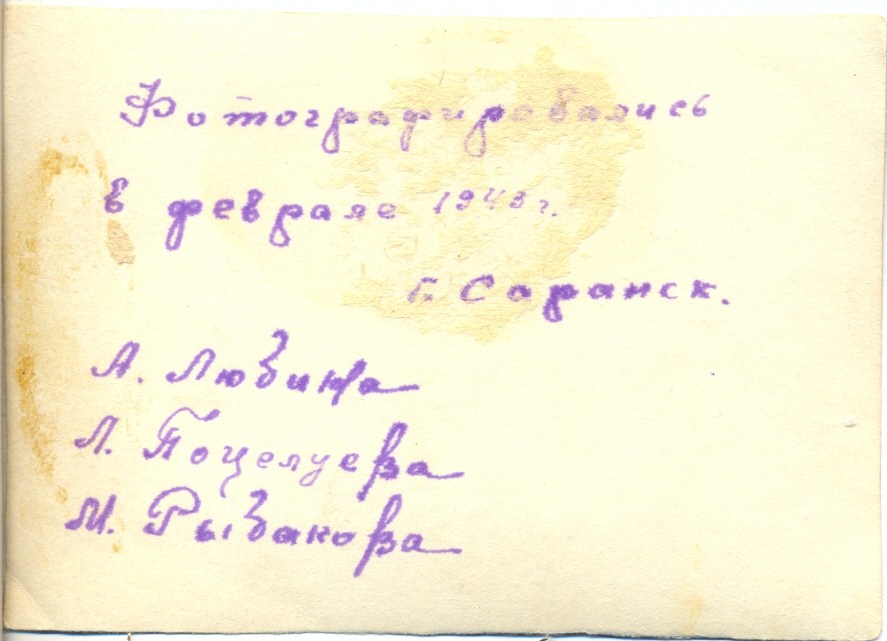 Фотографировались
в феврале 1943 г.
г. Саранск.
А. Любина
Л. Поцелуева
М. Рыбакова